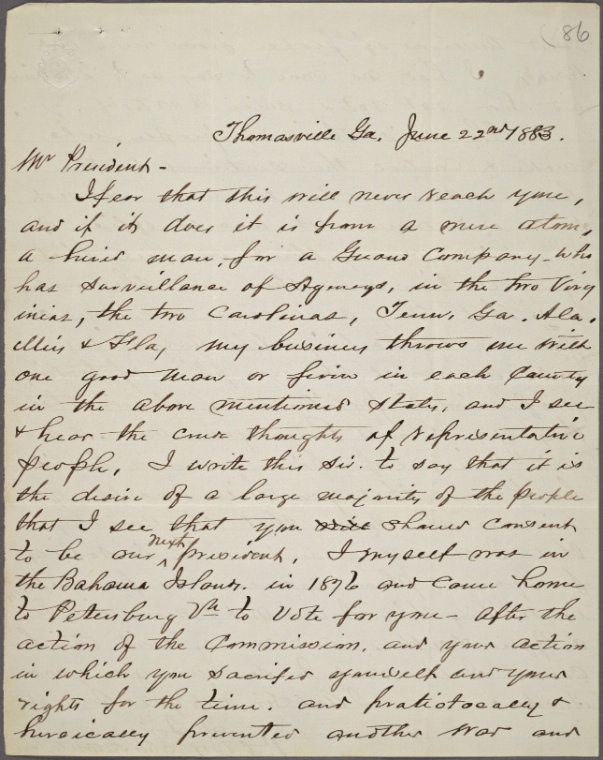 (86
Thomasville Ga, June 22nd 1883.
Mr President-
I fear that this will never reach you,
and if it does it is from a mere atom,
a hired man, for a Guano Company - who
has surveillance of Agencys, in the two Virg
inias, the two Carolinas, Tenn, Ga. Ala.
Miss & Fla, my business throws me with
one good man or firm in each County
in the above mentioned States, and I see
& hear the crude thoughts of representative
people, I write this sir. to say that it is
the desire of a large majority of the people
that I see that you will should consent
to be our next president, I myself was in
the Bahama Islands. in 1876 and came home
to Petersburg Va to vote for you - after the
action of the Commission. and your action
in which you sacrifed yourself and your
rights for the time. and patriotocally &
heroically prevented another war and